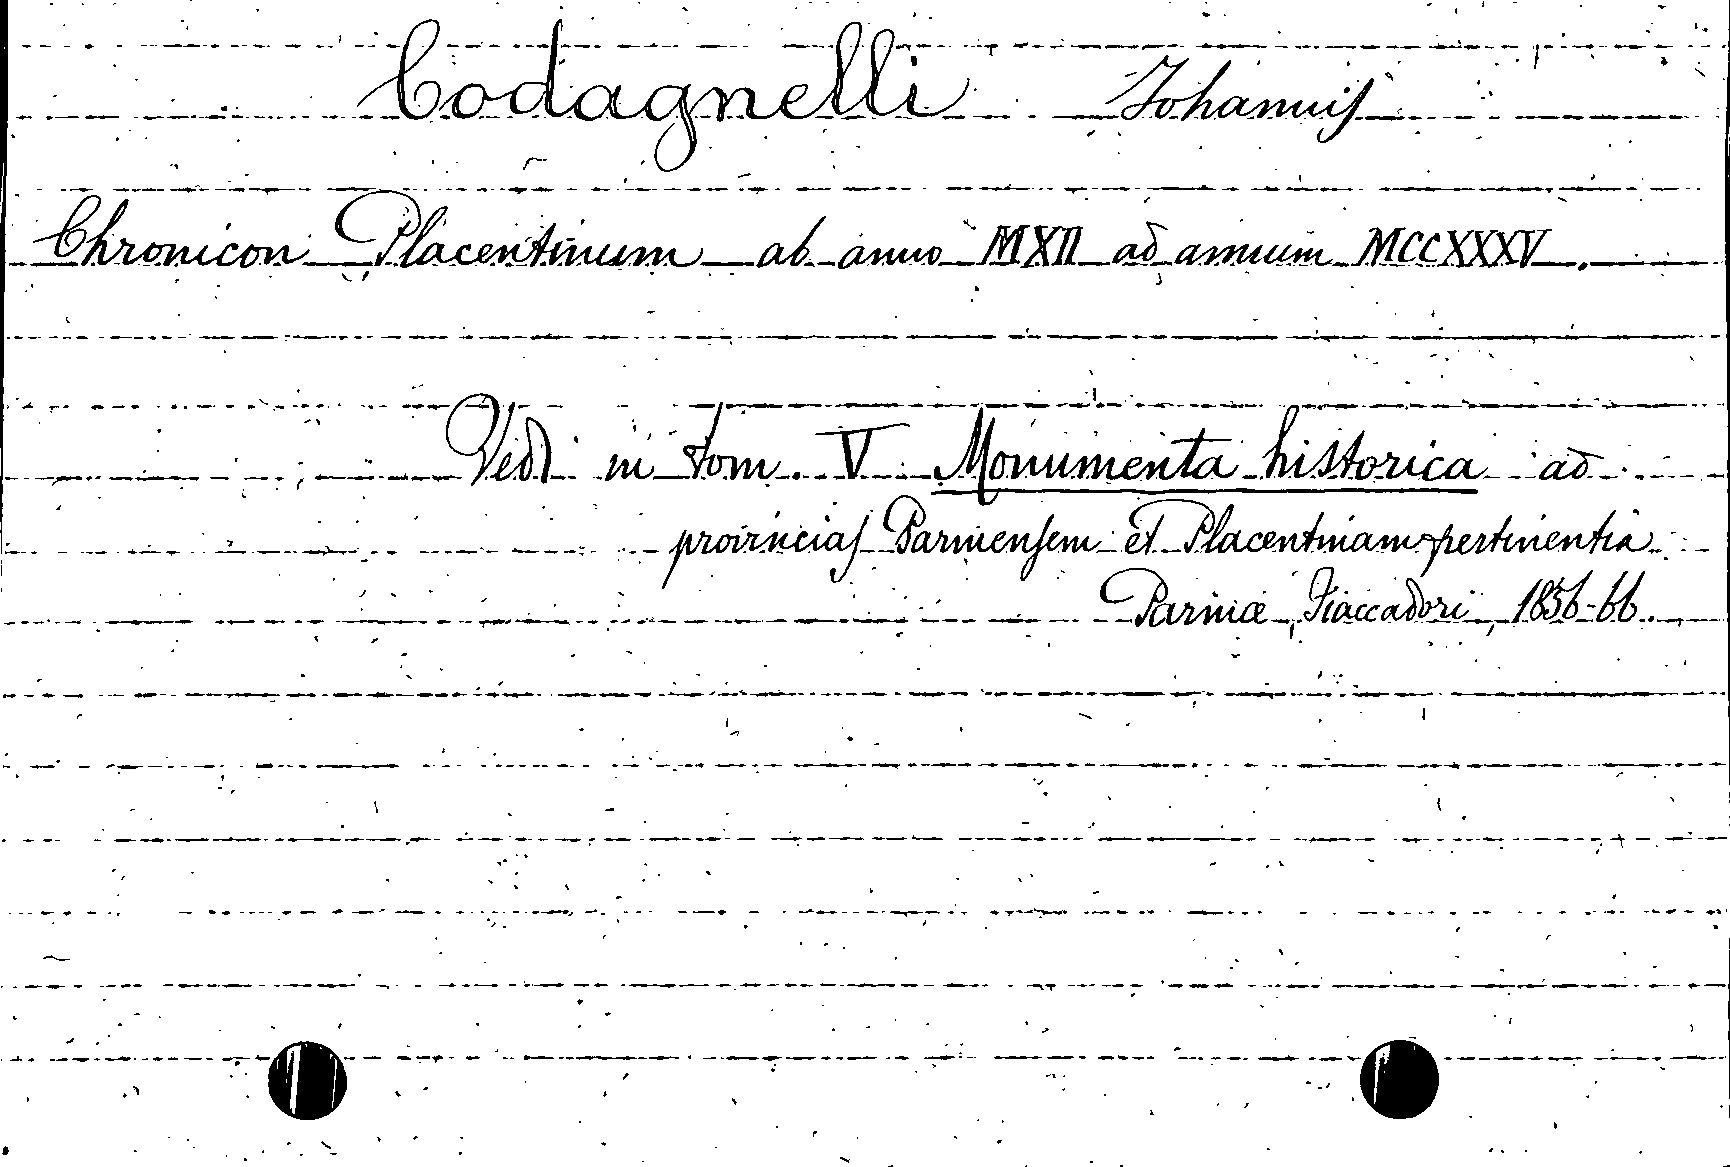 Codagnelli Johannis
Chronicon Placentinum ab anno MXII ad annum MCCXXXV.
Vedi in tom. V Monumenta historica ad
provincias Parmensem et Placentinam pertinentia
Parmæ, Fiaccadori, 1856-66.